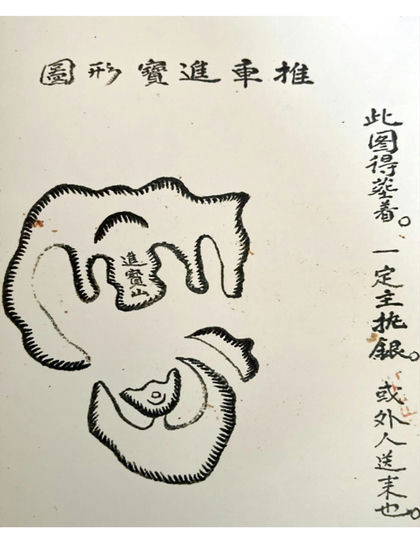 推車進寶形圖
此图得葬着。一定主执銀。或外人送来也。
進寶山